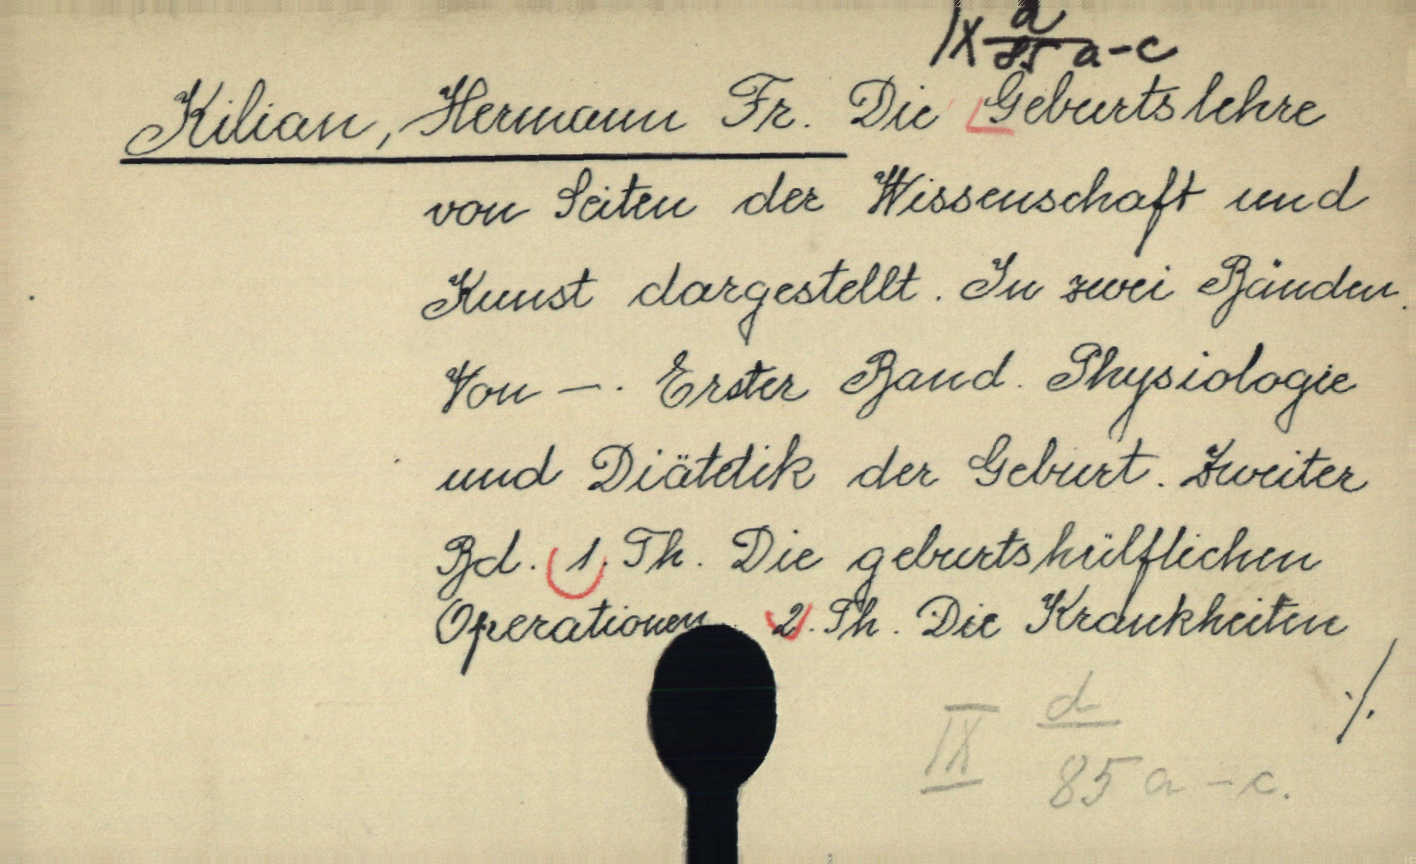 IX d/85 a-c
Kilian, Hermann Fr. Die Geburtslehre
von Seiten der Wissenschaft und
Kunst dargestellt. In zwei Bänden.
Von —. Erster Band. Physiologie
und Diätetik der Geburt. Zweiter
Bd. 1. Th. Die geburtshülflichen
Operationen. 2. Th. Die Krankheiten
./.
IX d/85 a-c.